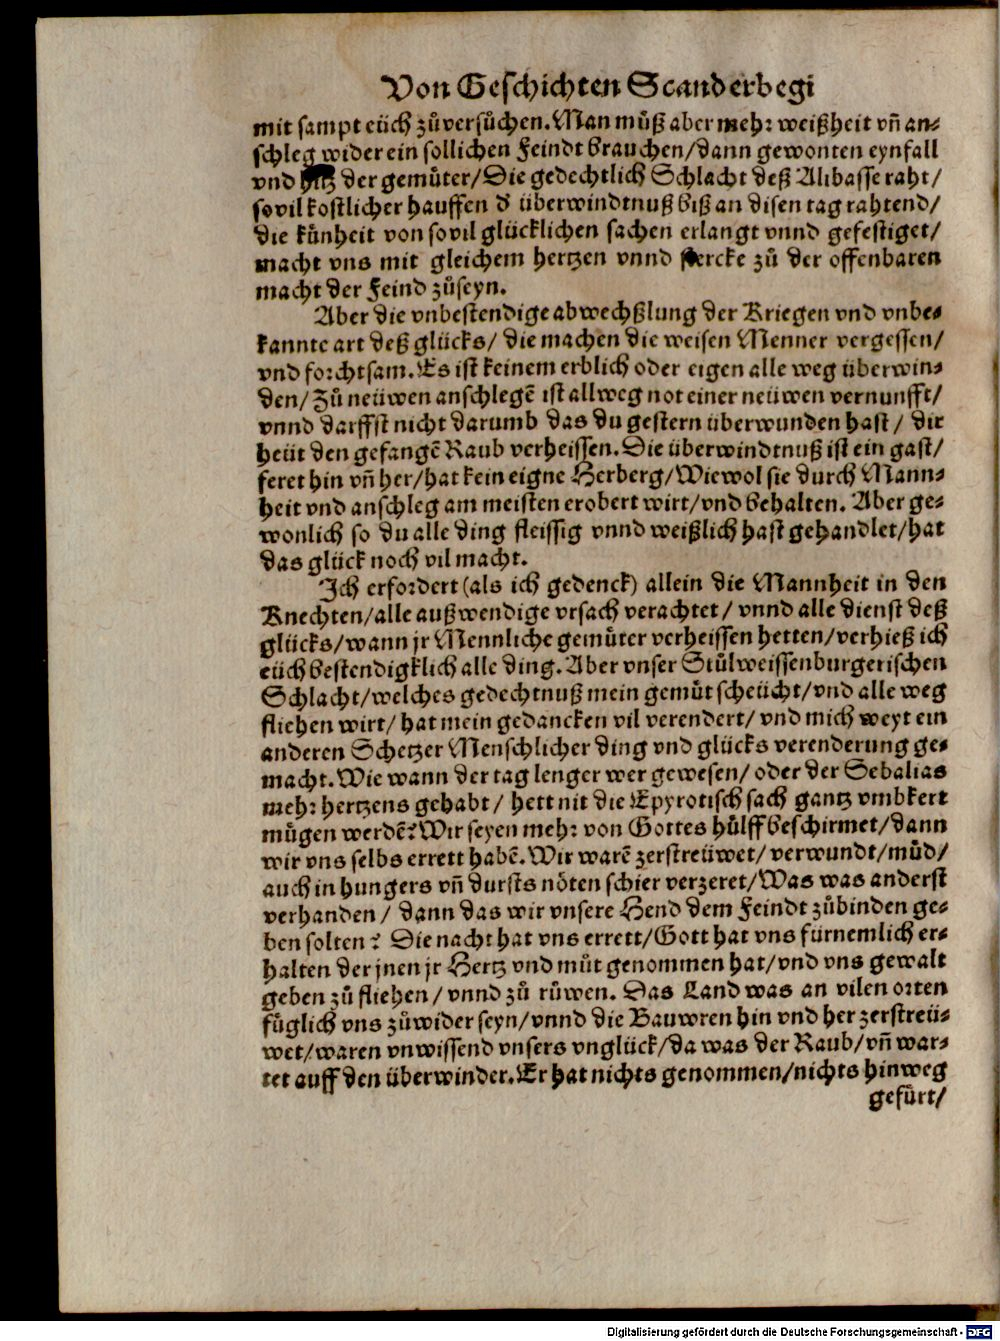 Von Geschichten Scanderbegi
mit sampt eüch zůversůchen. Man můß aber mehr weißheit vñ an-
schleg wider ein sollichen Feindt brauchen/dann gewonten eynfall
vnd hitz der gemůter/Die gedechtlich Schlacht deß Alibasse raht/
sovil kostlicher hauffen d' überwindtnuß biß an disen tag rahtend/
die kůnheit von sovil glücklichen sachen erlangt vnnd gefestiget/
macht vns mit gleichem hertzen vnnd stercke zů der offenbaren
macht der Feind zůseyn.
Aber die vnbestendige abwechßlung der Kriegen vnd vnbe-
kannte art deß glücks/ die machen die weisen Menner vergessen/
vnd forchtsam. Es ist keinem erblich oder eigen alle weg überwin-
den/ Zů neüwen anschlegē ist allweg not einer neüwen vernunfft/
vnnd darffst nicht darumb das du gestern überwunden hast/ dir
heüt den gefangē Raub verheissen. Die überwindtnuß ist ein gast/
feret hin vñ her/hat kein eigne Herberg/Wiewol sie durch Mann-
heit vnd anschleg am meisten erobert wirt/vnd behalten. Aber ge-
wonlich so du alle ding fleissig vnnd weißlich hast gehandlet/hat
das glück noch vil macht.
Ich erfordert (als ich gedenck) allein die Mannheit in den
Knechten/alle außwendige vrsach verachtet/ vnnd alle dienst deß
glücks/wann jr Mennliche gemůter verheissen hetten/verhieß ich
eüch bestendigklich alle ding. Aber vnser Stůlweissenburgerischen
Schlacht/welches gedechtnuß mein gemůt scheücht/vnd alle weg
fliehen wirt/ hat mein gedancken vil verendert/ vnd mich weyt ein
anderen Schetzer Menschlicher ding vnd glücks verenderung ge-
macht. Wie wann der tag lenger wer gewesen/ oder der Sebalias
mehr hertzens gehabt/ hett nit die Epyrotisch sach gantz vmbkert
mügen werdē? Wir seyen mehr von Gottes hülff beschirmet/dann
wir vns selbs errett habē. Wir warē zerstreüwet/ verwundt/můd/
auch in hungers vñ dursts nöten schier verzeret/Was was anderst
verhanden/ dann das wir vnsere Hend dem Feindt zůbinden ge-
ben solten? Die nacht hat vns errett/Gott hat vns fürnemlich er-
halten der jnen jr Hertz vnd můt genommen hat/vnd vns gewalt
geben zů fliehen/ vnnd zů růwen. Das Land was an vilen orten
füglich vns zůwider seyn/vnnd die Bauwren hin vnd her zerstreü-
wet/waren vnwissend vnsers vnglück/da was der Raub/vñ war-
tet auff den überwinder. Er hat nichts genommen/nichts hinweg
gefůrt/
Digitalisierung gefördert durch die Deutsche Forschungsgemeinschaft - DFG